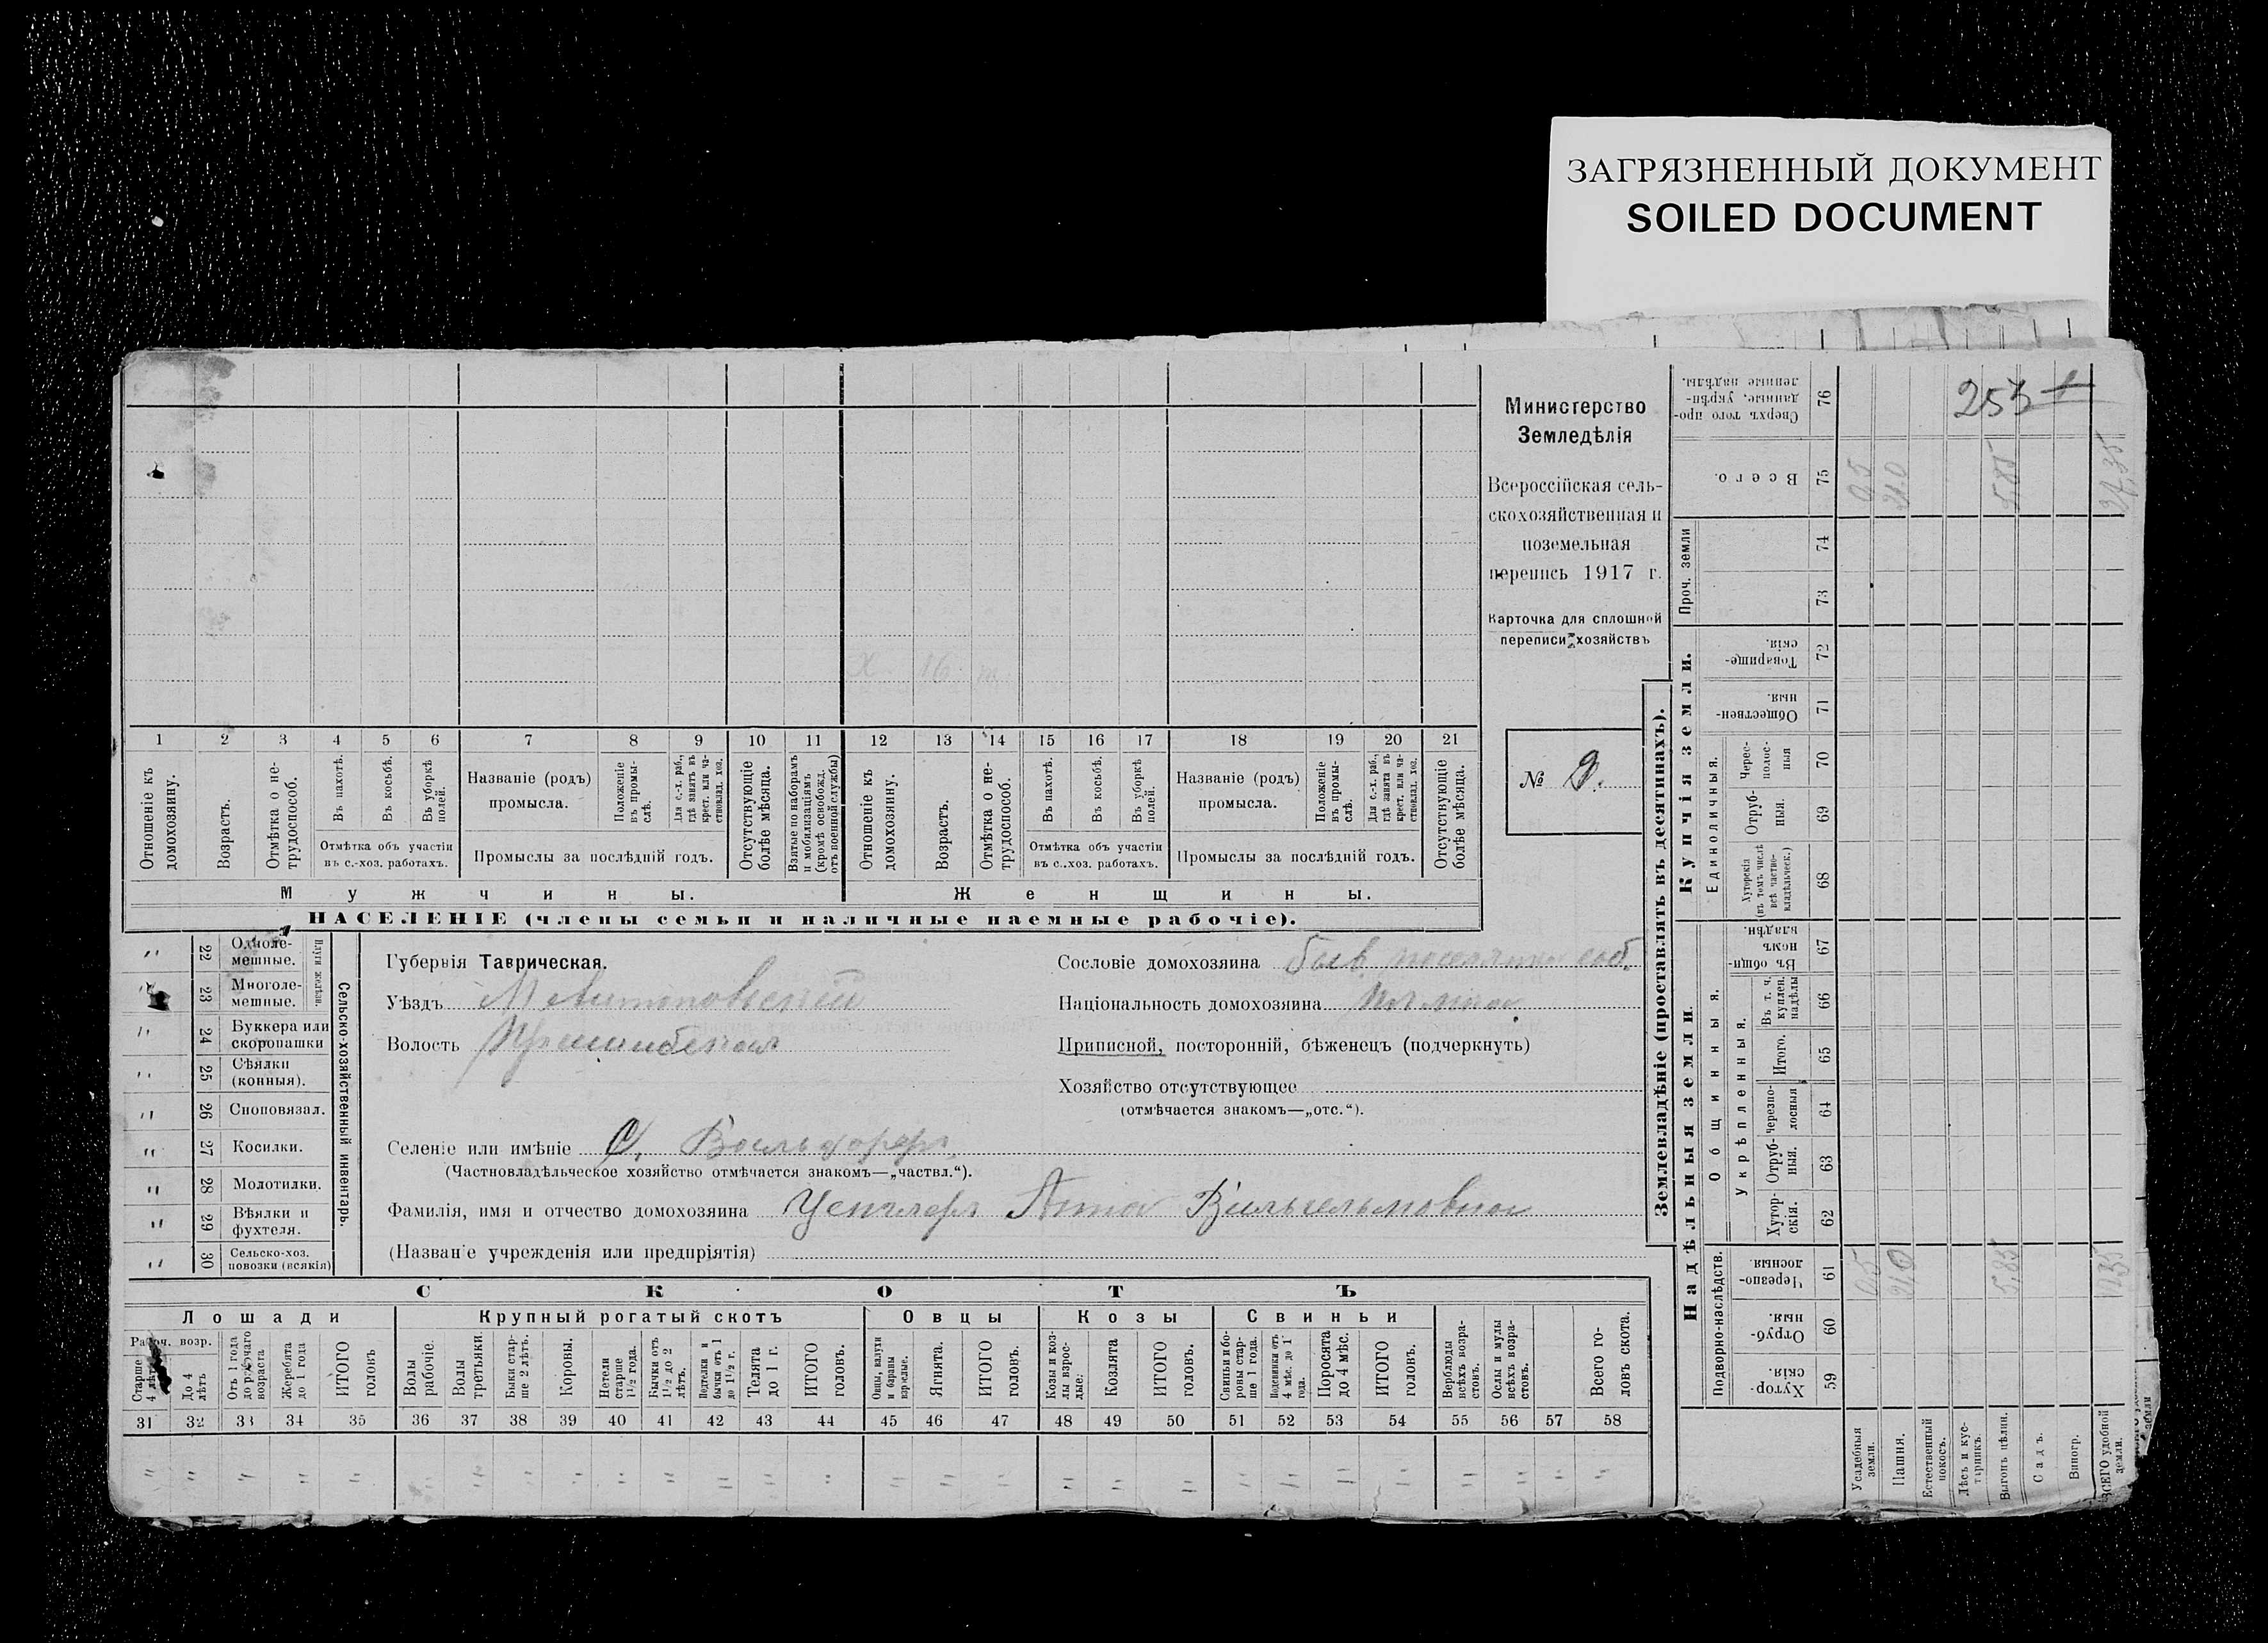 ЗАГРЯЗНЕННЫЙ ДОКУМЕНТ
SOILED DOCUMENT
Министерство
Земледѣлія
Всероссійская сель-
скохозяйственная и
поземельная
перепись 1917 г.
Карточка для сплошной
переписи хозяйствъ
№ 9.
1 2 3 4 5 6 7 8 9 10 11 12 13 14 15 16 17 18 19 20 21
Отношеніе къ домохозяину.
Возрастъ.
Отмѣтка о не-трудоспособ.
Въ пахотѣ.
Въ косьбѣ.
Въ уборкѣ полей.
Отмѣтка объ участіи
въ с.-хоз. работахъ.
Названіе (родъ)
промысла.
Положеніе въ промы-слѣ.
Для с.-х. раб., гдѣ занятъ въ крест. или ча-стновлад. хоз.
Промыслы за послѣдній годъ.
Отсутствующіе болѣе мѣсяца.
Взятые по наборамъ и мобилизаціямъ (кромѣ освобожд. отъ военной службы)
Отношеніе къ домохозяину.
Возрастъ.
Отмѣтка о не-трудоспособ.
Въ пахотѣ.
Въ косьбѣ.
Въ уборкѣ полей.
Отмѣтка объ участіи
въ с.-хоз. работахъ.
Названіе (родъ)
промысла.
Положеніе въ промы-слѣ.
Для с.-х. раб., гдѣ занята въ крест. или ча-стновлад. хоз.
Промыслы за послѣдній годъ.
Отсутствующіе болѣе мѣсяца.
Мужчины. Женщины.
НАСЕЛЕНІЕ (члены семьи и наличные наемные рабочіе).
22 Одноле-мешные.
23 Многоле-мешные.
Плуги желѣзн.
24 Буккера или скоропашки
25 Сѣялки (конныя).
26 Сноповязал.
27 Косилки.
28 Молотилки.
29 Вѣялки и фухтеля.
30 Сельско-хоз. повозки (всякія)
Сельско-хозяйственный инвентарь.
Губернія Таврическая.
Уѣздъ Мелитопольскій
Волость Пришибская
Селеніе или имѣніе С. Вальдорфъ
(Частновладѣльческое хозяйство отмѣчается знакомъ—„частвл.“).
Фамилія, имя и отчество домохозяина Анна Вильгельмовна
(Названіе учрежденія или предпріятія)
Сословіе домохозяина быв. поселянин соб.
Національность домохозяина
Приписной, посторонній, бѣженецъ (подчеркнуть)
Хозяйство отсутствующее
(отмѣчается знакомъ—„отс.“).
СКОТЪ
Лошади Крупный рогатый скотъ Овцы Козы Свиньи
Рабоч. возр.
Старше 4 лѣтъ
До 4 лѣтъ
Отъ 1 года до рабочаго возраста
Жеребята до 1 года
ИТОГО головъ
Волы рабочіе.
Волы третьяки.
Быки стар-ше 2 лѣтъ.
Коровы.
Нетели старше 1½ года.
Бычки отъ 1½ до 2 лѣтъ.
Подтелки и бычки отъ 1 до 1½ г.
Телята до 1 г.
ИТОГО головъ.
Овцы, валухи и бараны взрослые.
Ягнята.
ИТОГО головъ.
Козы и коз-лы взрос-лые.
Козлята
ИТОГО головъ.
Свиньи и бо-ровы стар-ше 1 года.
Подсвинки отъ 4 мѣс. до 1 года.
Поросята до 4 мѣс.
ИТОГО головъ.
Верблюды всѣхъ возра-стовъ.
Ослы и мулы всѣхъ возра-стовъ.
Всего го-ловъ скота.
31 32 33 34 35 36 37 38 39 40 41 42 43 44 45 46 47 48 49 50 51 52 53 54 55 56 57 58
Землевладѣніе (проставлять въ десятинахъ).
Надѣльныя земли. Купчія земли. Проч. земли
Подворно-наслѣдств.
Общинныя.
Укрѣпленныя.
Единоличныя.
Хутор-скія. 59
Отруб-ныя. 60
Черезпо-лосныя 61
Хутор-скія. 62
Отруб-ныя. 63
Черезпо-лосныя 64
Итого. 65
Въ т. ч. куплен. надѣлы 66
Въ общин-номъ владѣн. 67
Хуторскія (въ томъ числѣ всѣ частно-владѣльческ.) 68
Отруб-ныя. 69
Черес-полос-ныя 70
Обществен-ныя. 71
Товарище-скія. 72
73
74
Всего. 75
Сверхъ того про-данные, укрѣп-ленные надѣлы. 76
Усадебныя земли.
Пашня.
Естественный покосъ.
Лѣсъ и кус-тарникъ.
Выгонъ цѣлин.
Садъ.
Виногр.
ВСЕГО удобной земли.
0,5 21.0 5,85
0,5 21.0 5,85 27,35